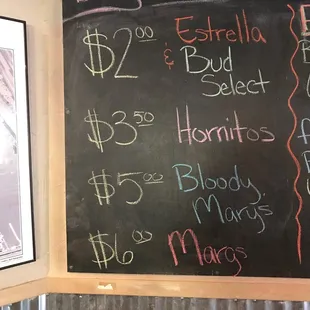 $2.00 Estrella
& Bud
Select
$3.50 Hornitos
$5.00 Bloody
Marys
$6.00 Margs